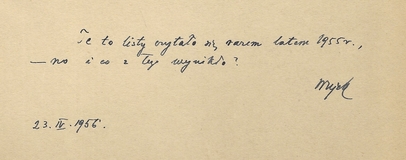 Że to listy czytało się razem latem 1955 r.,
— no i co z tego wynikło?
23.IV.1956.